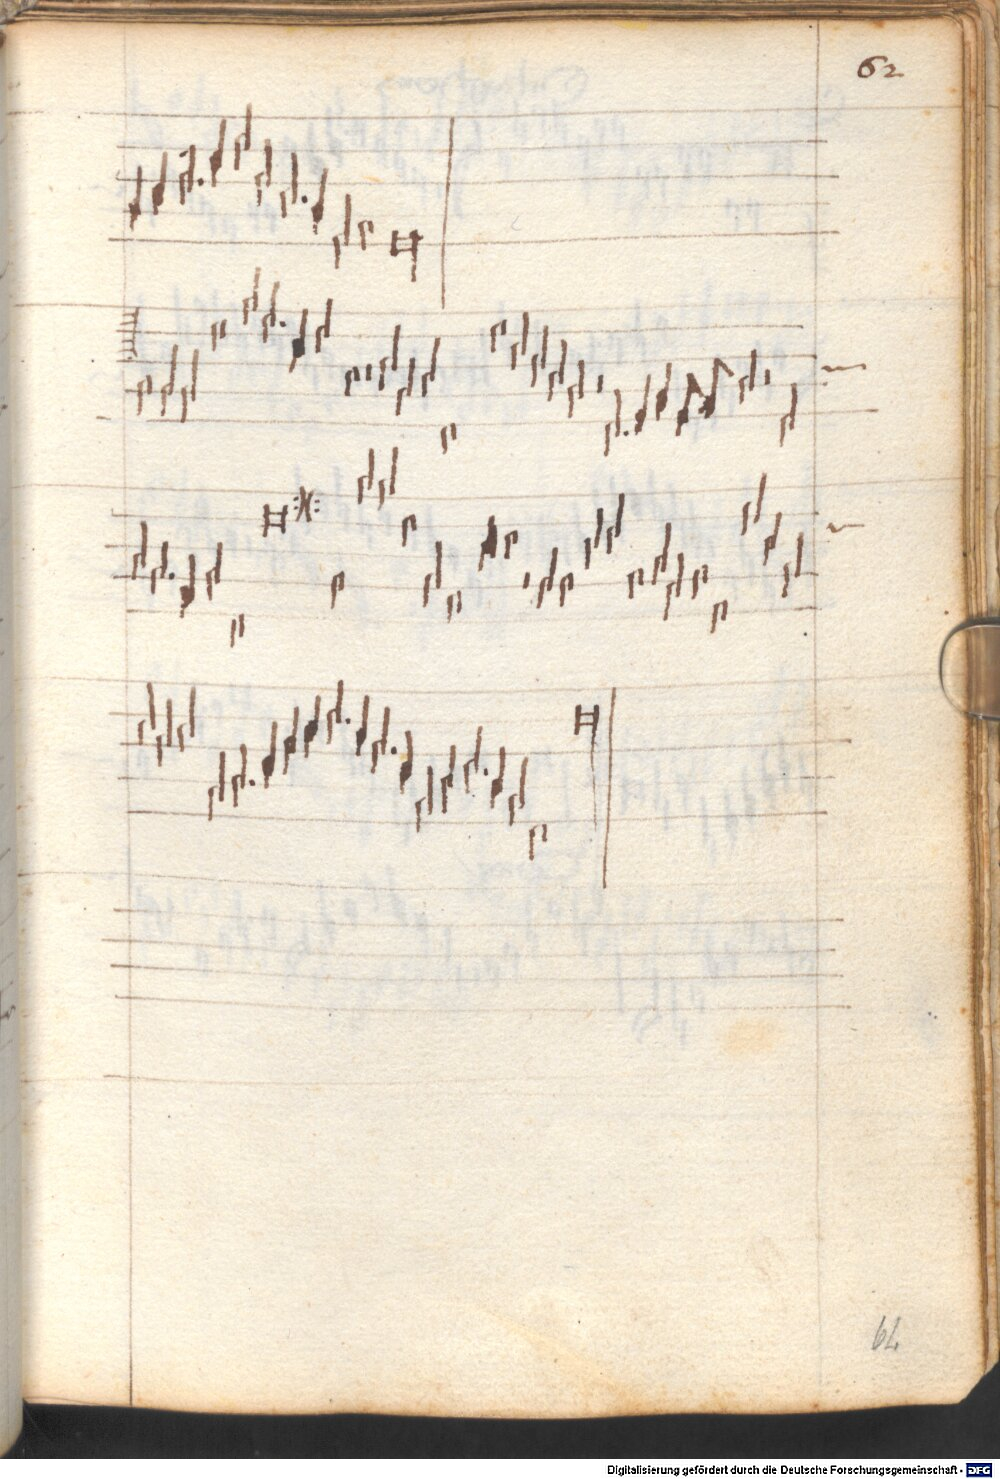 62
62
Digitalisierung gefördert durch die Deutsche Forschungsgemeinschaft - DFG